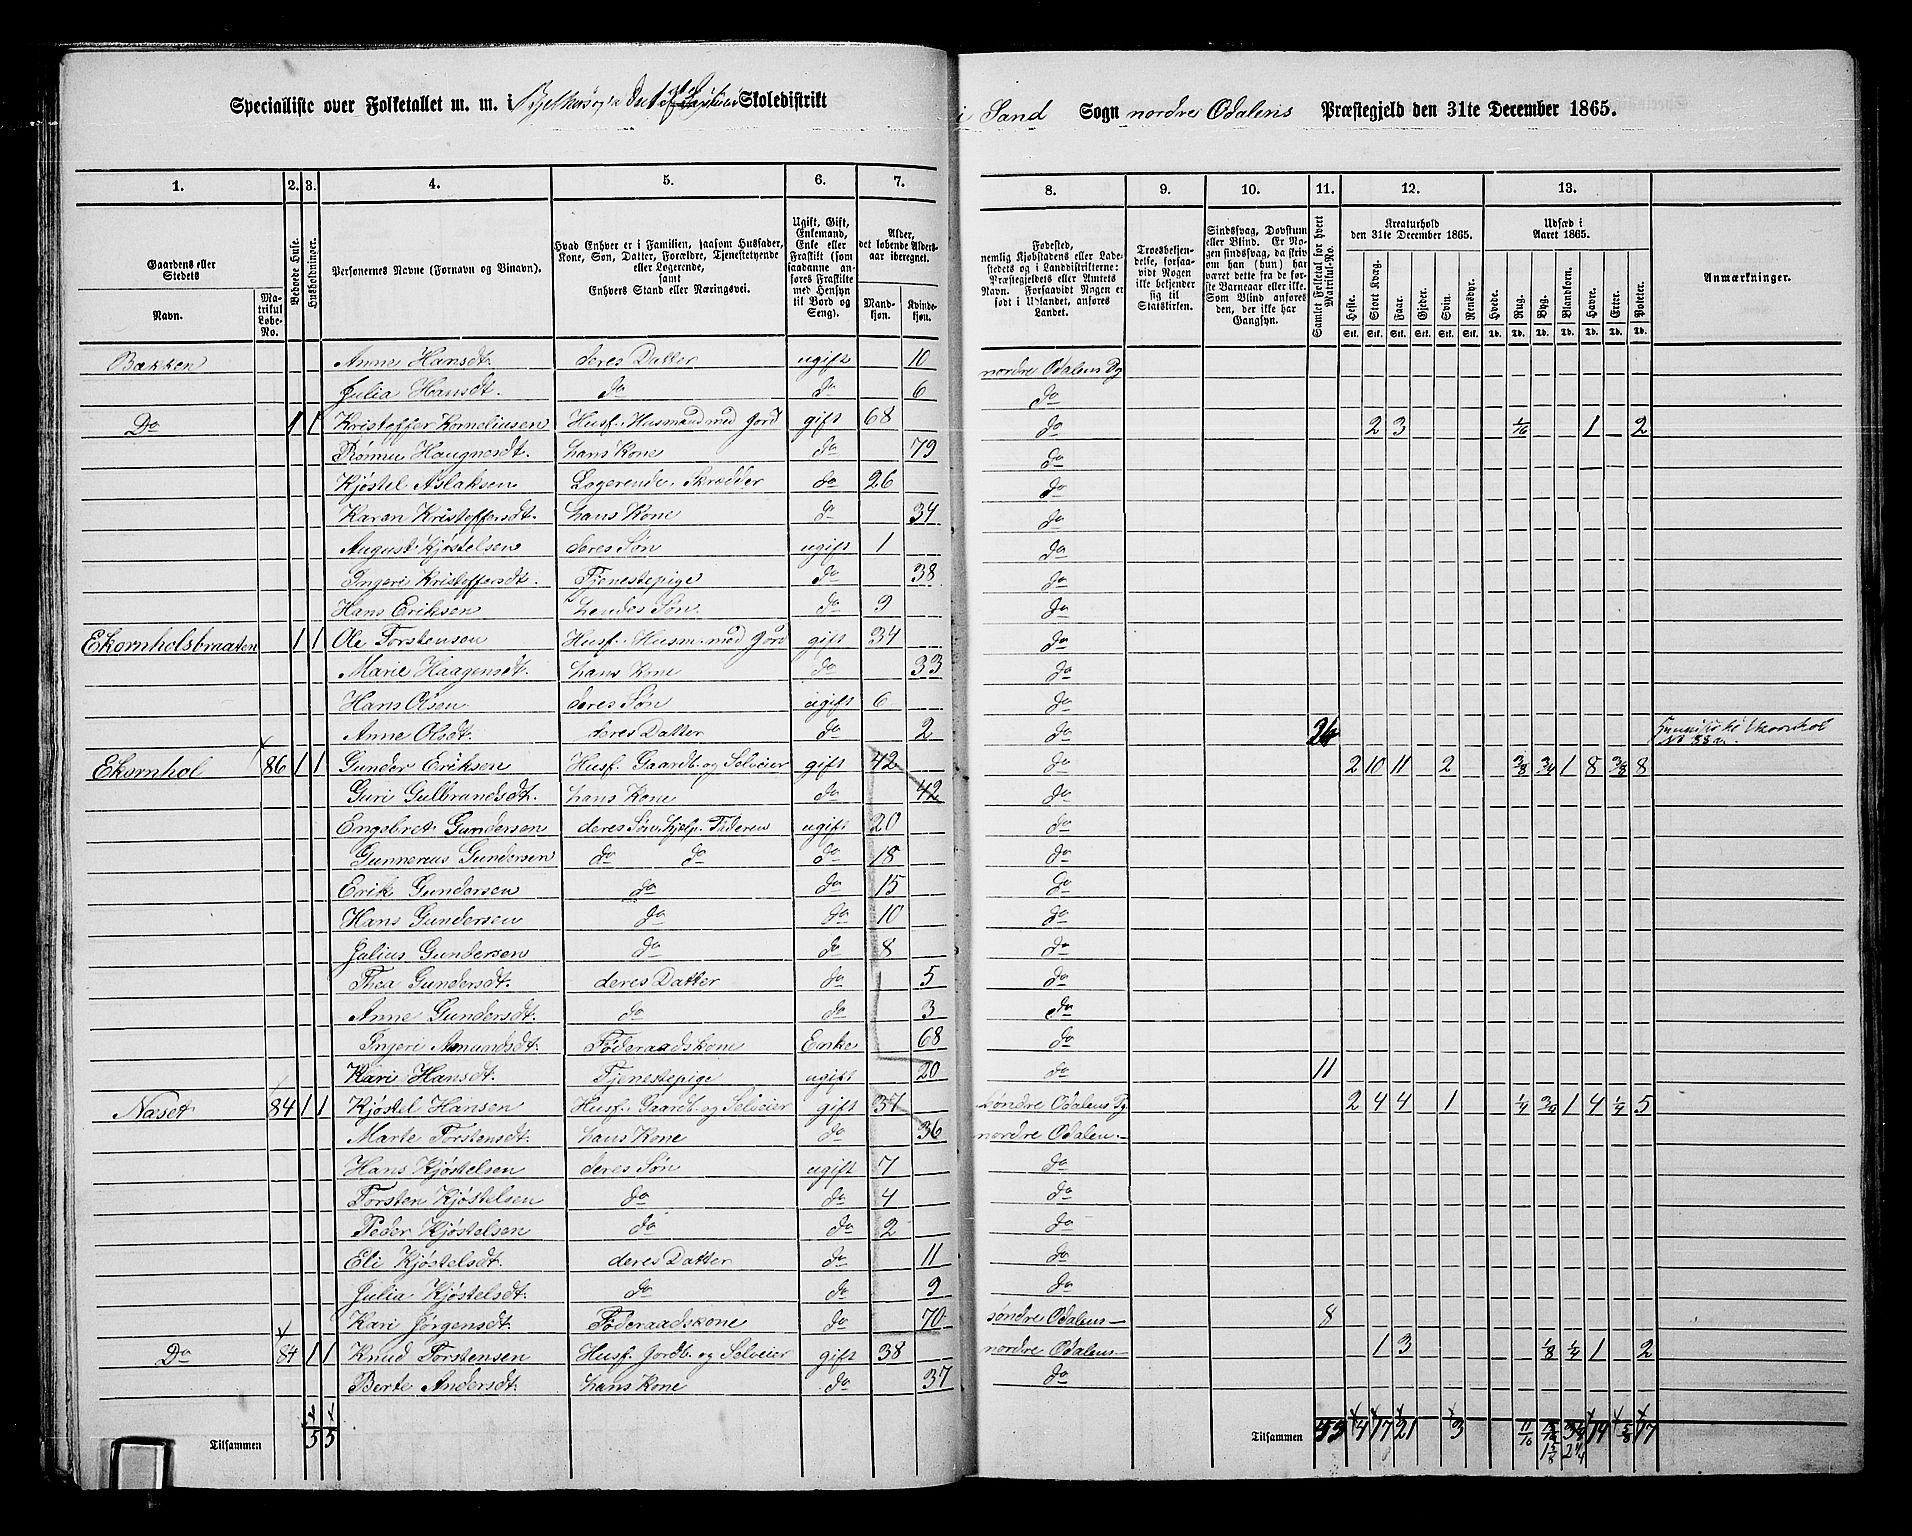 Specialliste over Folketallet m. m. i Skoledistrikt i Sand Sogn nordre Odalens Præstegjeld den 31te December 1865.
1. 2. 3. 4. 5. 6. 7. 8. 9. 10. 11. 12. 13.
Gaardens eller Stedets
Navn.
Matrikul Løbe-No.
Beboede Huse.
Husholdninger.
Personernes Navne (Fornavn og Binavn).
Hvad Enhver er i Familien, saasom Husfader, Kone, Søn, Datter, Forældre, Tjenestetyende eller Logerende, samt Enhvers Stand eller Næringsvei.
Ugift, Gift, Enkemand, Enke eller Fraskilt (som saadanne anføres Fraskilte med Hensyn til Bord og Seng).
Alder, det løbende Aldersaar iberegnet.
Mandkjøn. Kvindekjøn.
Fødested, nemlig Kjøbstadens eller Ladestedets og i Landdistrikterne: Præstegjeldets eller Amtets Navn. Forsaavidt Nogen er født i Udlandet, anføres Landet.
Troesbekjendelse, forsaavidt Nogen ikke bekjender sig til Statskirken.
Sindssvag, Døvstum eller Blind. Er Nogen sindssvag, da skrives om han (hun) har været dette fra de første Barneaar eller ikke. Som Blind anføres den, der ikke har Gangsyn.
Samlet Folketal for hvert Matrikul-No.
Kreaturhold den 31te December 1865.
Heste. Stort Kvæg. Faar. Gjeder. Svin. Rensdyr.
Stk. Stk. Stk. Stk. Stk. Stk.
Udsæd i Aaret 1865.
Hvede. Rug. Byg. Blandkorn. Havre. Erter. Poteter.
Td. Td. Td. Td. Td. Td. Td.
Anmærkninger.
Bakken Anne Hansdt. deres Datter ugift 10 nordre Odalens Pg
Julia Hansdt. do do 6 do
Do 1 1 Kristoffer Korneliusen Husf. Husmand med Jord gift 68 do 2 3 1/16 1 2
Haugnesdt. hans Kone do 79 do
Kjøstel Aslaksen Logerende, Skrædder do 26 do
Karen Kristoffersdt. hans Kone do 34 do
August Kjøstelsen deres Søn ugift 1 do
Ingeri Kristoffersdt. Tjenestepige do 38 do
Hans Eriksen hendes Søn do 9 do
Ekornholsbraaten 1 1 Ole Torstensen Husf. Husm. med Jord gift 34 do
Marie Haagensdt. hans Kone do 33 do
Hans Olsen deres Søn ugift 6 do
Anne Olsdt. deres Datter do 2 do
Ekornhol 86 1 1 Gunder Eriksen Husf. Gaardb. og Selveier gift 42 do 2 10 11 2 3/8 3/4 1 8 3/8 8
Guri Gulbrandsdt. hans Kone do 42 do
Engebret Gundersen deres Søn, hjelp. Faderen ugift 20 do
Gunnereus Gundersen do do do 18 do
Erik Gundersen do do 15 do
Hans Gundersen do do 10 do
Julius Gundersen do do 8 do
Thea Gundersdt. deres Datter do 5 do
Anne Gundersdt. do do 3 do
Ingeri Amundsdt. Føderaadskone Enke 68 do
Kari Hansdt. Tjenestepige ugift 20 do 11
Næset 84 1 1 Kjøstel Hansen Husf. Gaardb. og Selveier gift 37 søndre Odalens Pg. 2 4 4 1 1/4 3/4 1 4 1/4 5
Marte Torstensdt. hans Kone do 36 nordre Odalen.-
Hans Kjøstelsen deres Søn ugift 7 do
Torsten Kjøstelsen do do 4 do
Peder Kjøstelsen do do 2 do
Eli Kjøstelsdt. deres Datter do 11 do
Julia Kjøstelsdt. do do 9 do
Kari Jørgensdt. Føderaadskone do 70 søndre Odalens- 8
Do 84 1 1 Knud Torstensen Husf. Jordb. og Selveier gift 38 nordre Odalens- 1 3 1/8 1/4 1 2
Berte Andersdt. hans Kone do 37 do
Tilsammen 5 5 Tilsammen 4 17 21 3 11/16 19 5/8 17